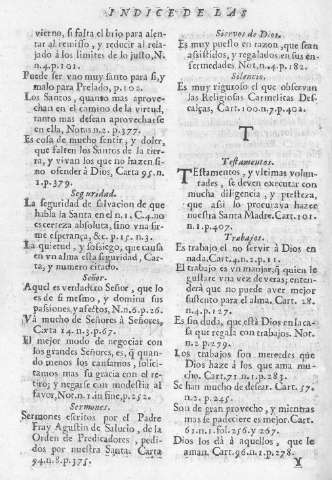 INDICE DE LAS
vierno, si falta el brio para alen-
tar al remisso, y reducir al rela-
jado à los limites de lo justo, N.
n.4.p.101.
Puede ser vno muy santo para si, y
malo para Prelado, p.102.
Los Santos, quanto mas aprove-
chan en el camino de la virtud,
tanto mas desean aprovecharse
en ella, Notas n.2. p.377.
Es cosa de mucho sentir, y dolor,
que falten los Santos de la tier-
ra, y vivan los que no hazen si-
no ofender à Dios, Carta 95. n.
1.p.379.
Seguridad.
La seguridad de salvacion de que
habla la Santa en el n.11. C.4. no
es certeza absoluta, sino vna fir-
me esperança, &c. p.15. n.3.
La quietud, y sossiego, que causa
en vn alma esta seguridad, Car-
ta, y numero citado.
Señor.
Aquel es verdadero Señor, que lo
es de si mesmo, y domina sus
passiones, y afectos, N.n.6.p.26.
Và mucho de Señores à Señores,
Carta 14. n.3. p.67.
El mejor modo de negociar con
los grandes Señores, es, q̃ quan-
do menos los cansamos, solici-
tamos mas su gracia con el re-
tiro; y negarse con modestia al
favor, Not. n.1. in fine, p.252.
Sermones.
Sermones escritos por el Padre
Fray Agustin de Salucio, de la
Orden de Predicadores, pedi-
dos por nuestra Santa. Carta
94.n.8.p.375.
Siervos de Dios.
Es muy puesto en razon, que sean
assistidos, y regalados en sus en-
fermedades Not.n.4.p.182.
Silencio.
Es muy riguroso el que observan
las Religiosas Carmelitas Des-
calças, Cart.100.n.7.p.402.
T
Testamentos.
TEstamentos, y vltimas volun-
tades, se deven executar con
mucha diligencia, y presteza,
que assi lo procurava hazer
nuestra Santa Madre. Cart.101.
n.1.p.407.
Trabajos.
Es trabajo, el no servir à Dios en
nada. Cart.4.n.2.p.11.
El trabajo es vn manjar, q̃ quien le
gustare vna vez de veras; enten-
derà que no puede aver mejor
sustento para el alma. Cart. 28.
n.4.p.127.
Es sin duda, que està Dios en la ca-
sa que regala con trabajos. Not.
n.2 p.279.
Los trabajos son mercedes que
Dios haze à los que ama mu-
cho. Cart.71.n.1.p.283.
Se han mucho de desear. Cart. 57.
n.2. p.245.
Son de gran provecho, y mientras
mas se padeciere es mejor. Cart.
61.n.1.fol.256.y 267.
Dios los dà à aquellos, que le
aman. Cart.96.n.1.p.278.
Y